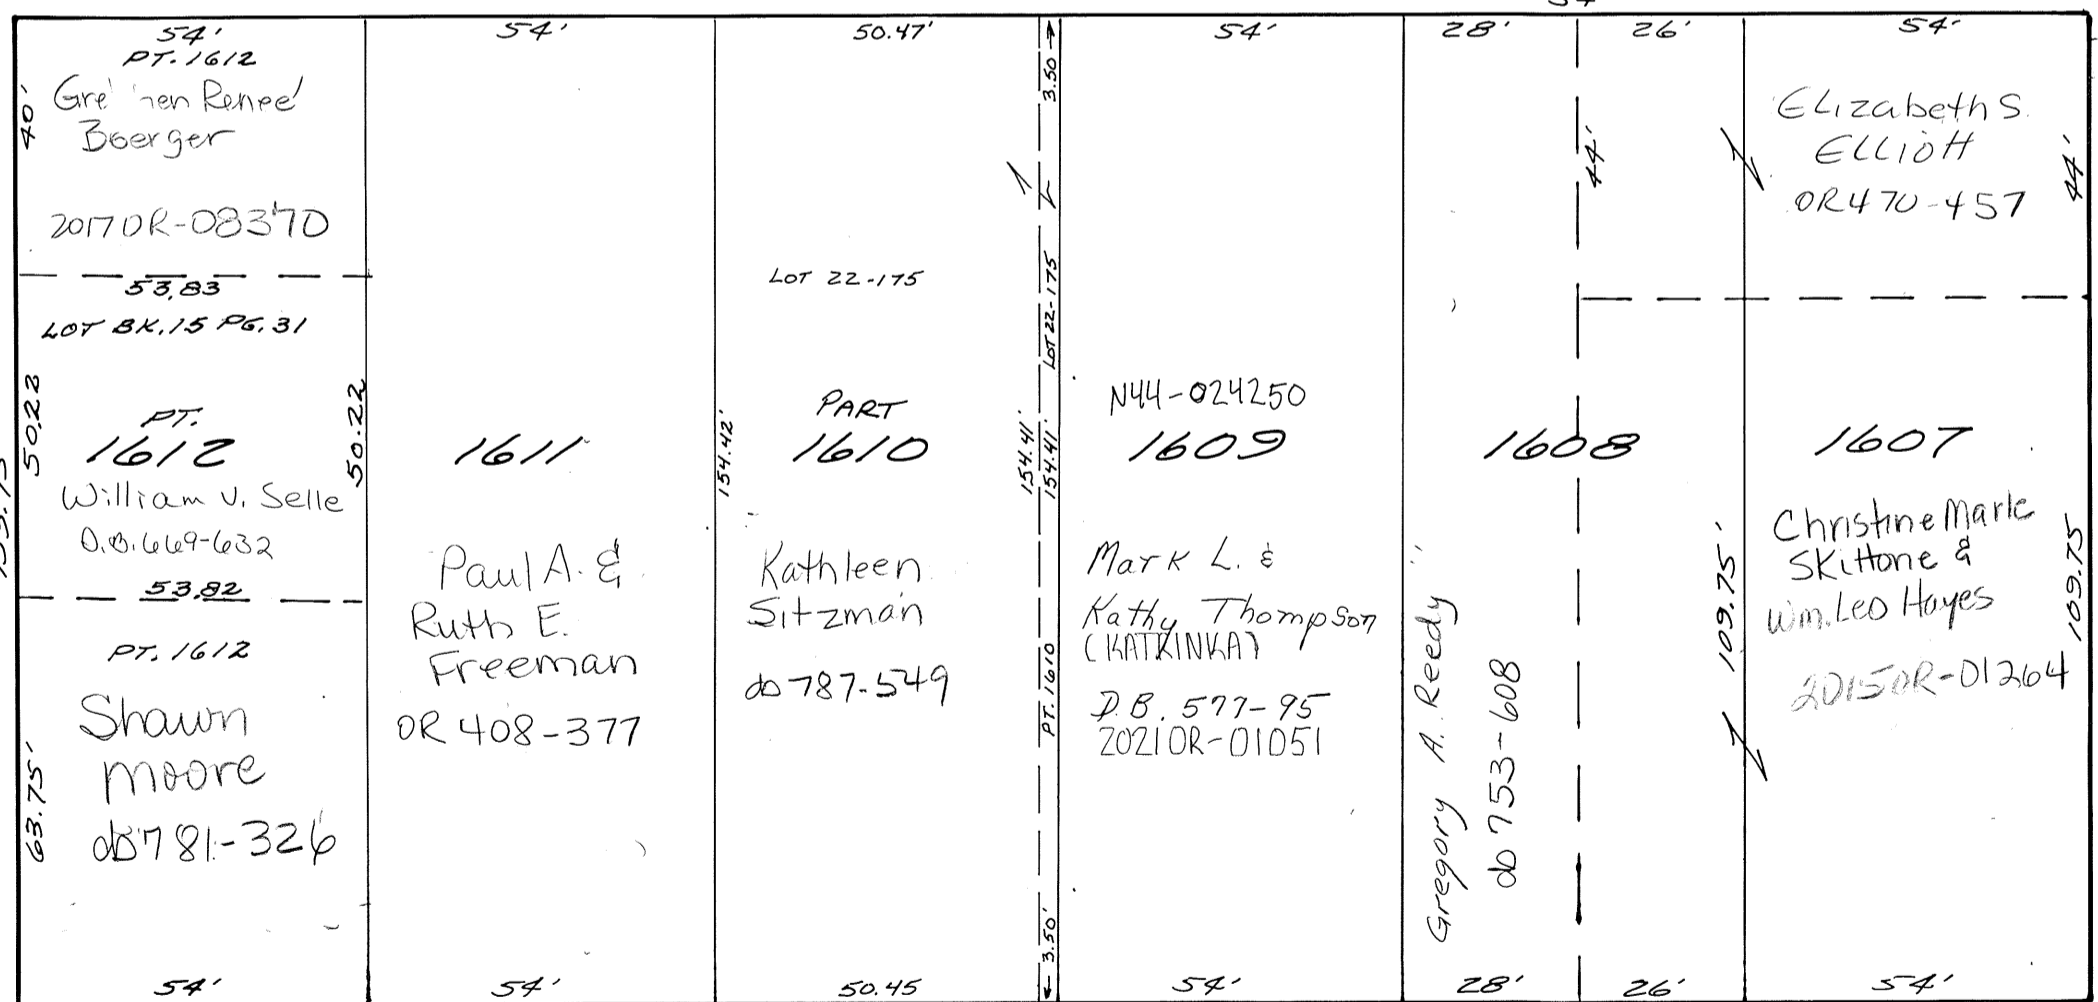 54'
PT. 1612
40'
Renee
Boerger
2017OR-08370
53.83
LOT BK. 15 PG. 31
50.22
PT.
1612
50.22
William V. Selle
D.B. 669-632
53.82
PT. 1612
Shawn
Moore
db 781-326
63.75'
54'
54'
1611
Paul A. &
Ruth E.
Freeman
OR 408-377
54'
50.47'
LOT 22-175
PART
1610
154.42'
154.41'
Kathleen
Sitzman
db 787-549
50.45
3.50
LOT 22-175
154.41'
PT. 1610
3.50'
54'
N44-024250
1609
Mark L. &
Kathy Thompson
(KATRINKA)
D.B. 577-95
2021OR-01051
54'
28'
26'
44'
1608
Gregory A. Reedy
db 753-608
109.75'
28'
26'
54'
Elizabeth S.
Elliott
OR 470-457
44'
1607
Christine Marie
Skittone &
Wm. Leo Hayes
2015OR-01264
109.75
54'